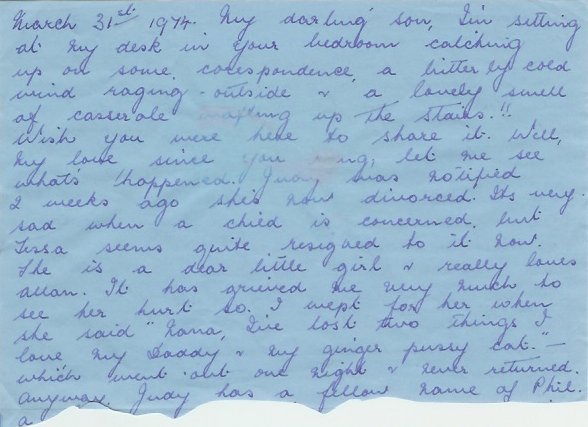 March 31st 1974. My darling son, I'm setting
at my desk in your bedroom catching
up on some correspondence, a bitterly cold
wind raging outside & a lovely smell
of casser'ole wafting up the stairs.!!
Wish you were here to share it. Well,
my love since you rang, let me see
what's happened. Judy was notified
2 weeks ago she's now divorced. Its very
sad when a child is concerned, but
Tessa seems quite resigned to it now.
She is a dear little girl & really loves
allan. It has grieved me very much to
see her hurt so. I wept for her when
she said "Nana, I've lost two things I
love my Daddy & my ginger pussy cat." —
which went out one night & never returned.
anyway, Judy has a fellow name of Phil.
a